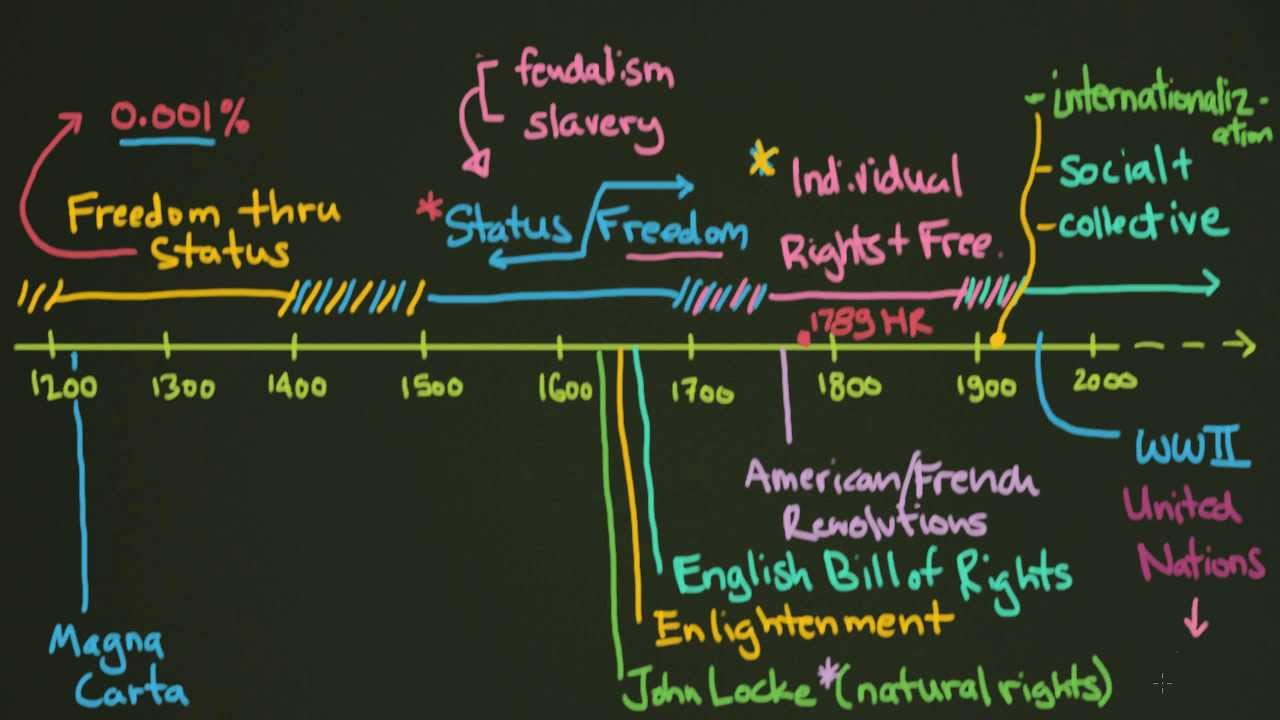 0.001%
Freedom thru
Status
feudalism
slavery
*Status Freedom
* Individual
Rights + Free.
- internationaliz-
ation
- social +
- collective
1789 HR
1200 1300 1400 1500 1600 1700 1800 1900 2000
Magna
Carta
American/French
Revolutions
English Bill of Rights
Enlightenment
John Locke *(natural rights)
WWII
United
Nations